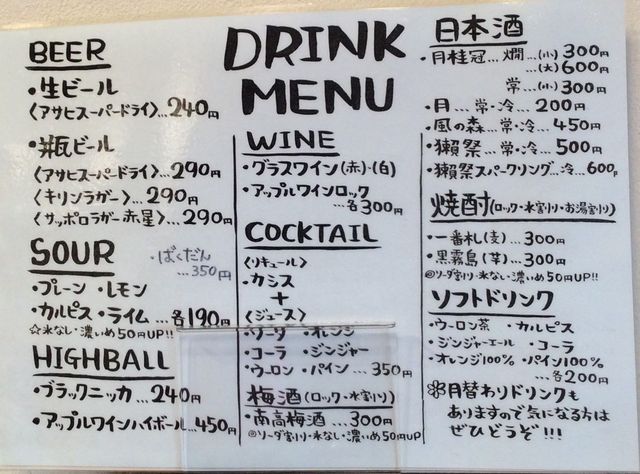 DRINK
MENU
BEER
・生ビール
〈アサヒスーパードライ〉…240円
・瓶ビール
〈アサヒスーパードライ〉…290円
〈キリンラガー〉…290円
〈サッポロラガー赤星〉…290円
SOUR
・ばくだん
…350円
・プレーン ・レモン
・カルピス ・ライム…各190円
☆氷なし・濃いめ50円UP!!
HIGHBALL
・ブラックニッカ…240円
・アップルワインハイボール…450円
WINE
・グラスワイン(赤)・(白)
・アップルワインロック
…各300円
COCKTAIL
〈リキュール〉
・カシス
＋
〈ジュース〉
・ソーダ ・オレンジ
・コーラ ・ジンジャー
・ウーロン ・パイン…350円
梅酒(ロック・水割り)
・南高梅酒…300円
◎ソーダ割り・氷なし・濃いめ50円UP
日本酒
・月桂冠…燗…(小)300円
(大)600円
常…(小)300円
・月…常・冷…200円
・風の森…常・冷…450円
・獺祭…常・冷…500円
・獺祭スパークリング…冷…600円
焼酎(ロック・水割り・お湯割り)
・一番札(麦)…300円
・黒霧島(芋)…300円
◎ソーダ割り・氷なし・濃いめ50円UP!!
ソフトドリンク
・ウーロン茶 ・カルピス
・ジンジャーエール ・コーラ
・オレンジ100% ・パイン100%
…各200円
❀月替わりドリンクも
ありますので気になる方は
ぜひどうぞ!!!